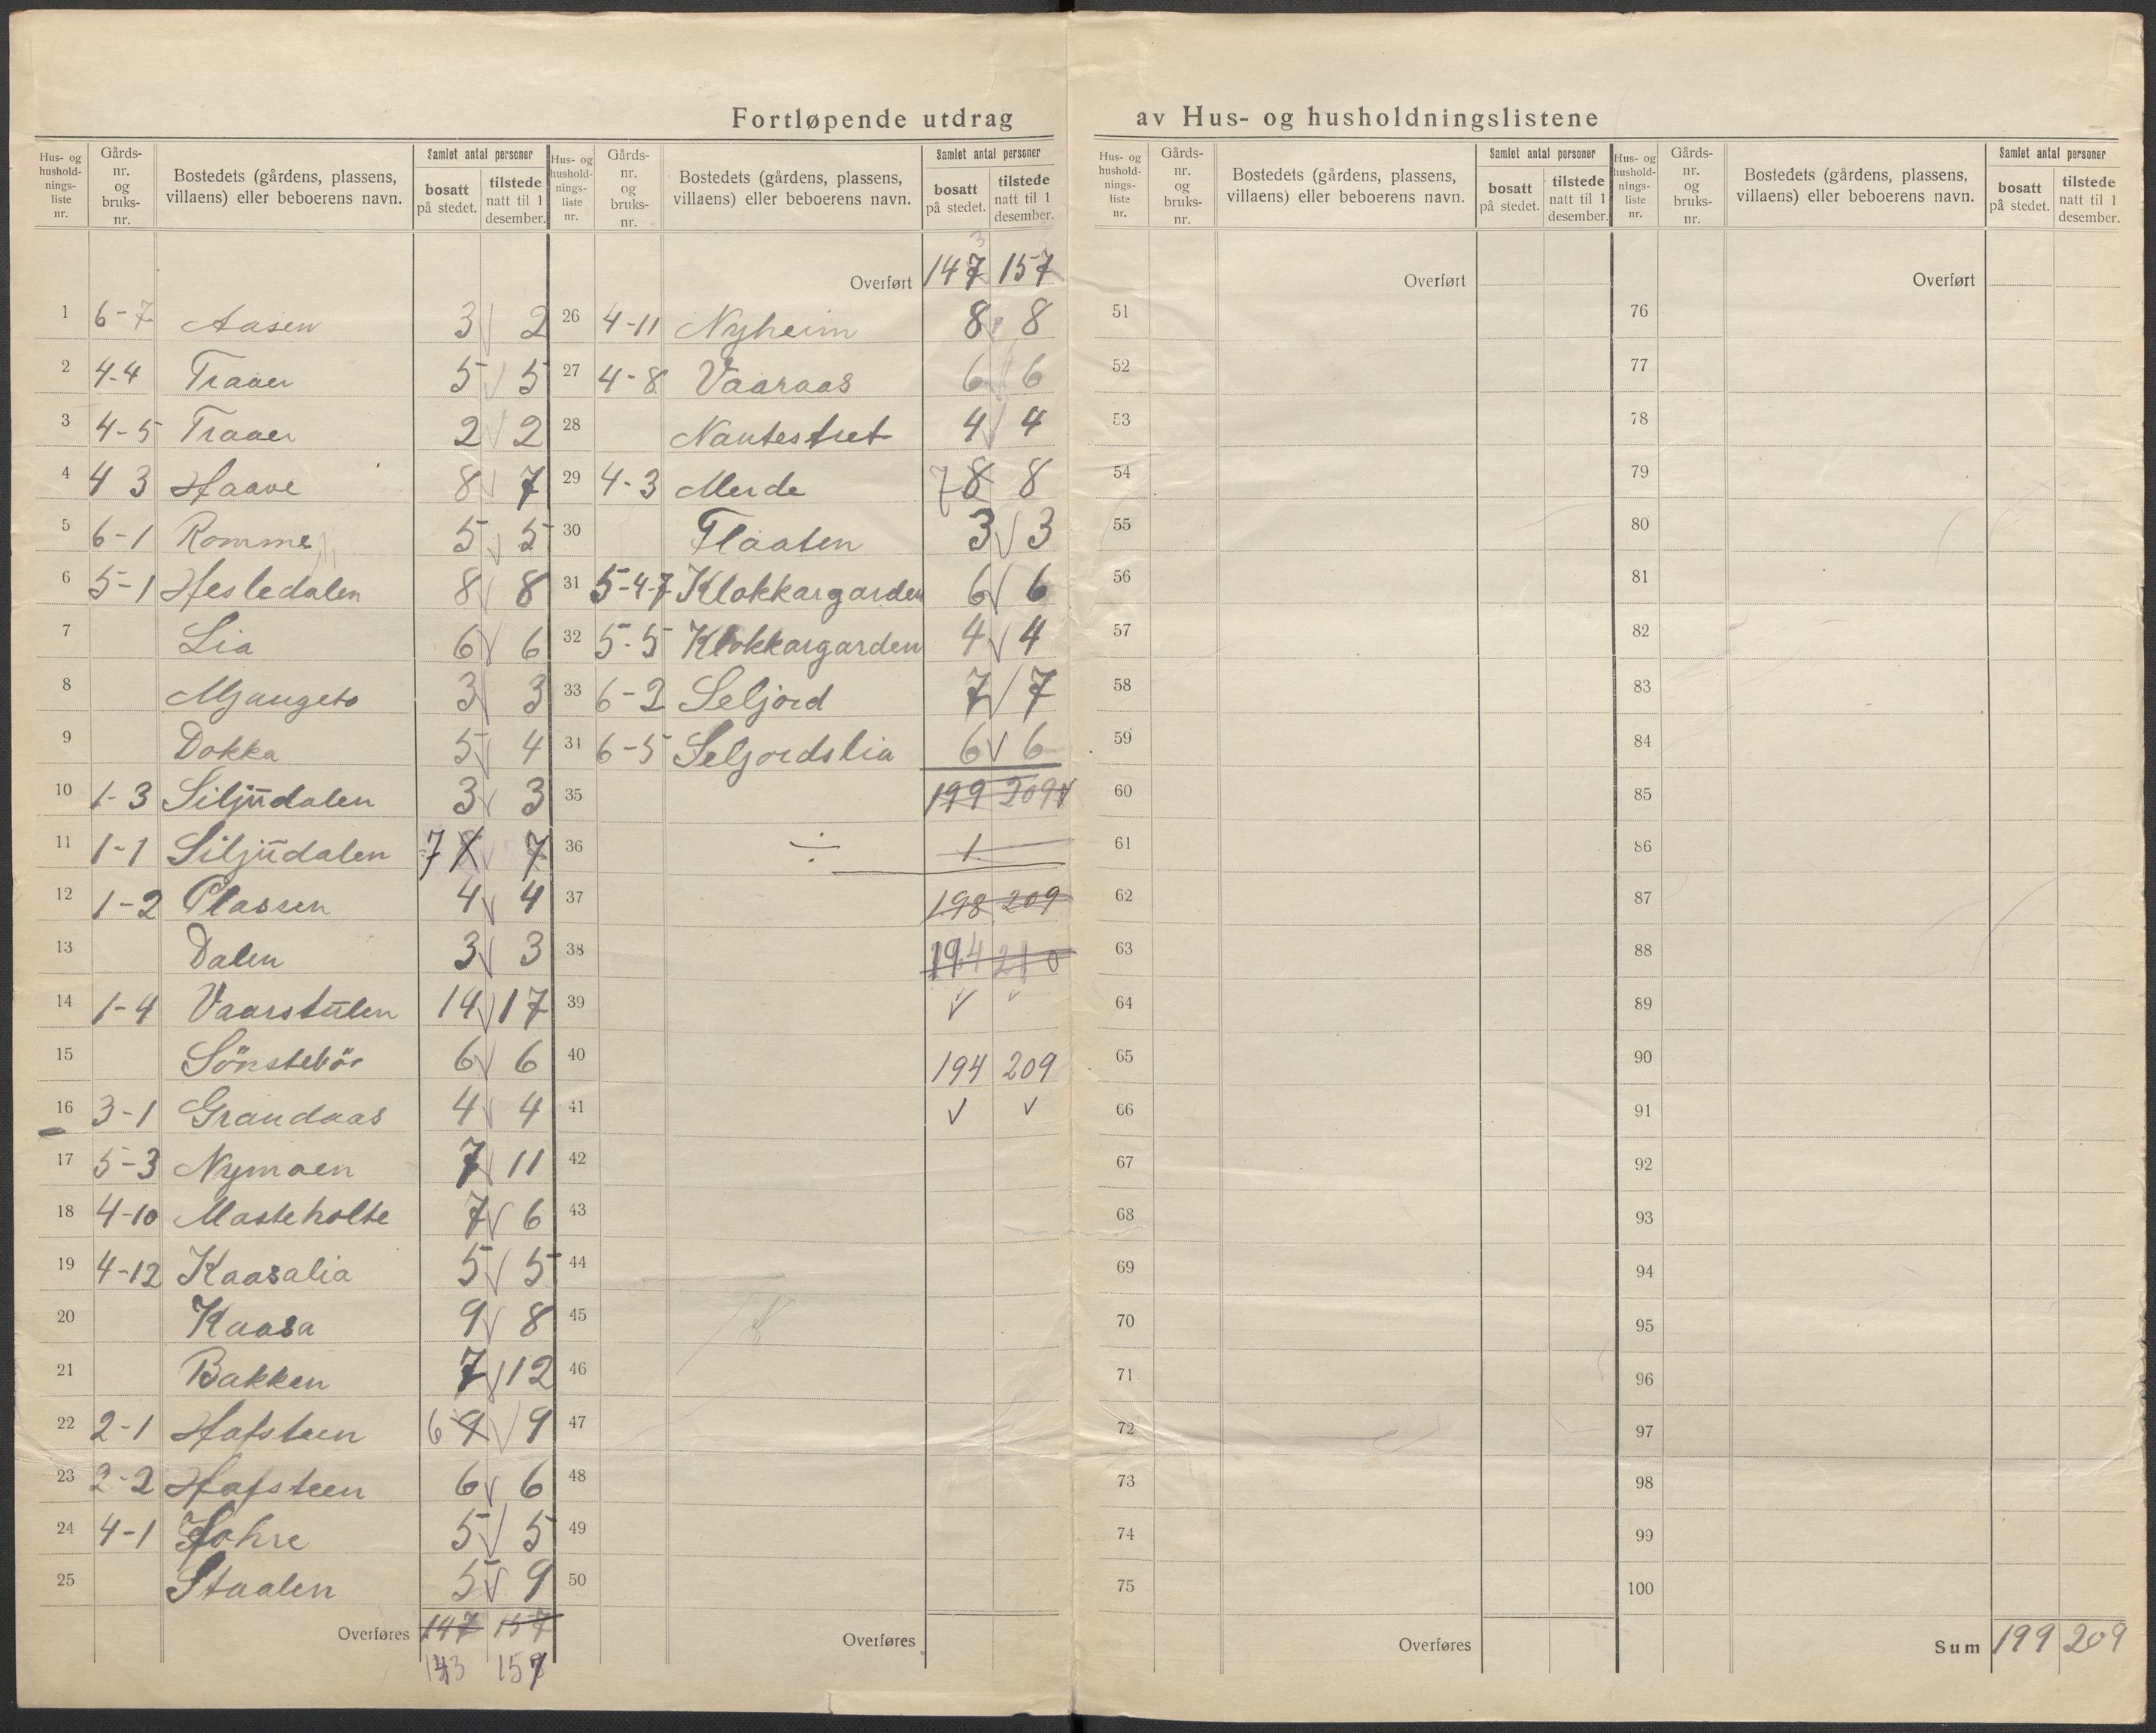 Fortløpende utdrag av Hus- og husholdningslistene
Hus- og husholdnings-liste nr. | Gårds-nr. og bruks-nr. | Bostedets (gårdens, plassens, villaens) eller beboerens navn. | Samlet antal personer | bosatt på stedet. | tilstede natt til 1 desember.
1 6-7 Aasen 3 2
2 4-4 Traaer 5 5
3 4-5 Traaer 2 2
4 4 3 Haave 8 7
5 6-1 Romme 5 5
6 5-1 Hesledalen 8 8
7 Lia 6 6
8 Mjaugeto 3 3
9 Dokka 5 4
10 1-3 Siljudalen 3 3
11 1-1 Siljudalen 7 7
12 1-2 Plassen 4 4
13 Dalen 3 3
14 1-4 Vaarstulen 14 17
15 Sönstebör 6 6
16 3-1 Grandaas 4 4
17 5-3 Nymoen 7 11
18 4-10 Masteholte 7 6
19 4-12 Kaasalia 5 5
20 Kaasa 9 8
21 Bakken 7 12
22 2-1 Hafsteen 6 9 9
23 2-2 Hafsteen 6 6
24 4-1 Hohre 5 5
25 Staalen 5 9
Overføres 147 157
143 157
Hus- og husholdnings-liste nr. | Gårds-nr. og bruks-nr. | Bostedets (gårdens, plassens, villaens) eller beboerens navn. | Samlet antal personer | bosatt på stedet. | tilstede natt til 1 desember.
3
Overført 147 157
26 4-11 Nyheim 8 8
27 4-8 Vaaraas 6 6
28 Nautestret 4 4
29 4-3 Merde 7 8 8
30 Flaaten 3 3
31 5-4-7 Klokkargarden 6 6
32 5-5 Klokkargarden 4 4
33 6-2 Seljord 7 7
34 6-5 Seljordslia 6 6
35 199 209
36 ÷ 1
37 198 209
38 194 210
39
40 194 209
41
42
43
44
45
46
47
48
49
50
Overføres
Hus- og husholdnings-liste nr. | Gårds-nr. og bruks-nr. | Bostedets (gårdens, plassens, villaens) eller beboerens navn. | Samlet antal personer | bosatt på stedet. | tilstede natt til 1 desember.
Overført
51
52
53
54
55
56
57
58
59
60
61
62
63
64
65
66
67
68
69
70
71
72
73
74
75
Overføres
Hus- og husholdnings-liste nr. | Gårds-nr. og bruks-nr. | Bostedets (gårdens, plassens, villaens) eller beboerens navn. | Samlet antal personer | bosatt på stedet. | tilstede natt til 1 desember.
Overført
76
77
78
79
80
81
82
83
84
85
86
87
88
89
90
91
92
93
94
95
96
97
98
99
100
Sum 199 209